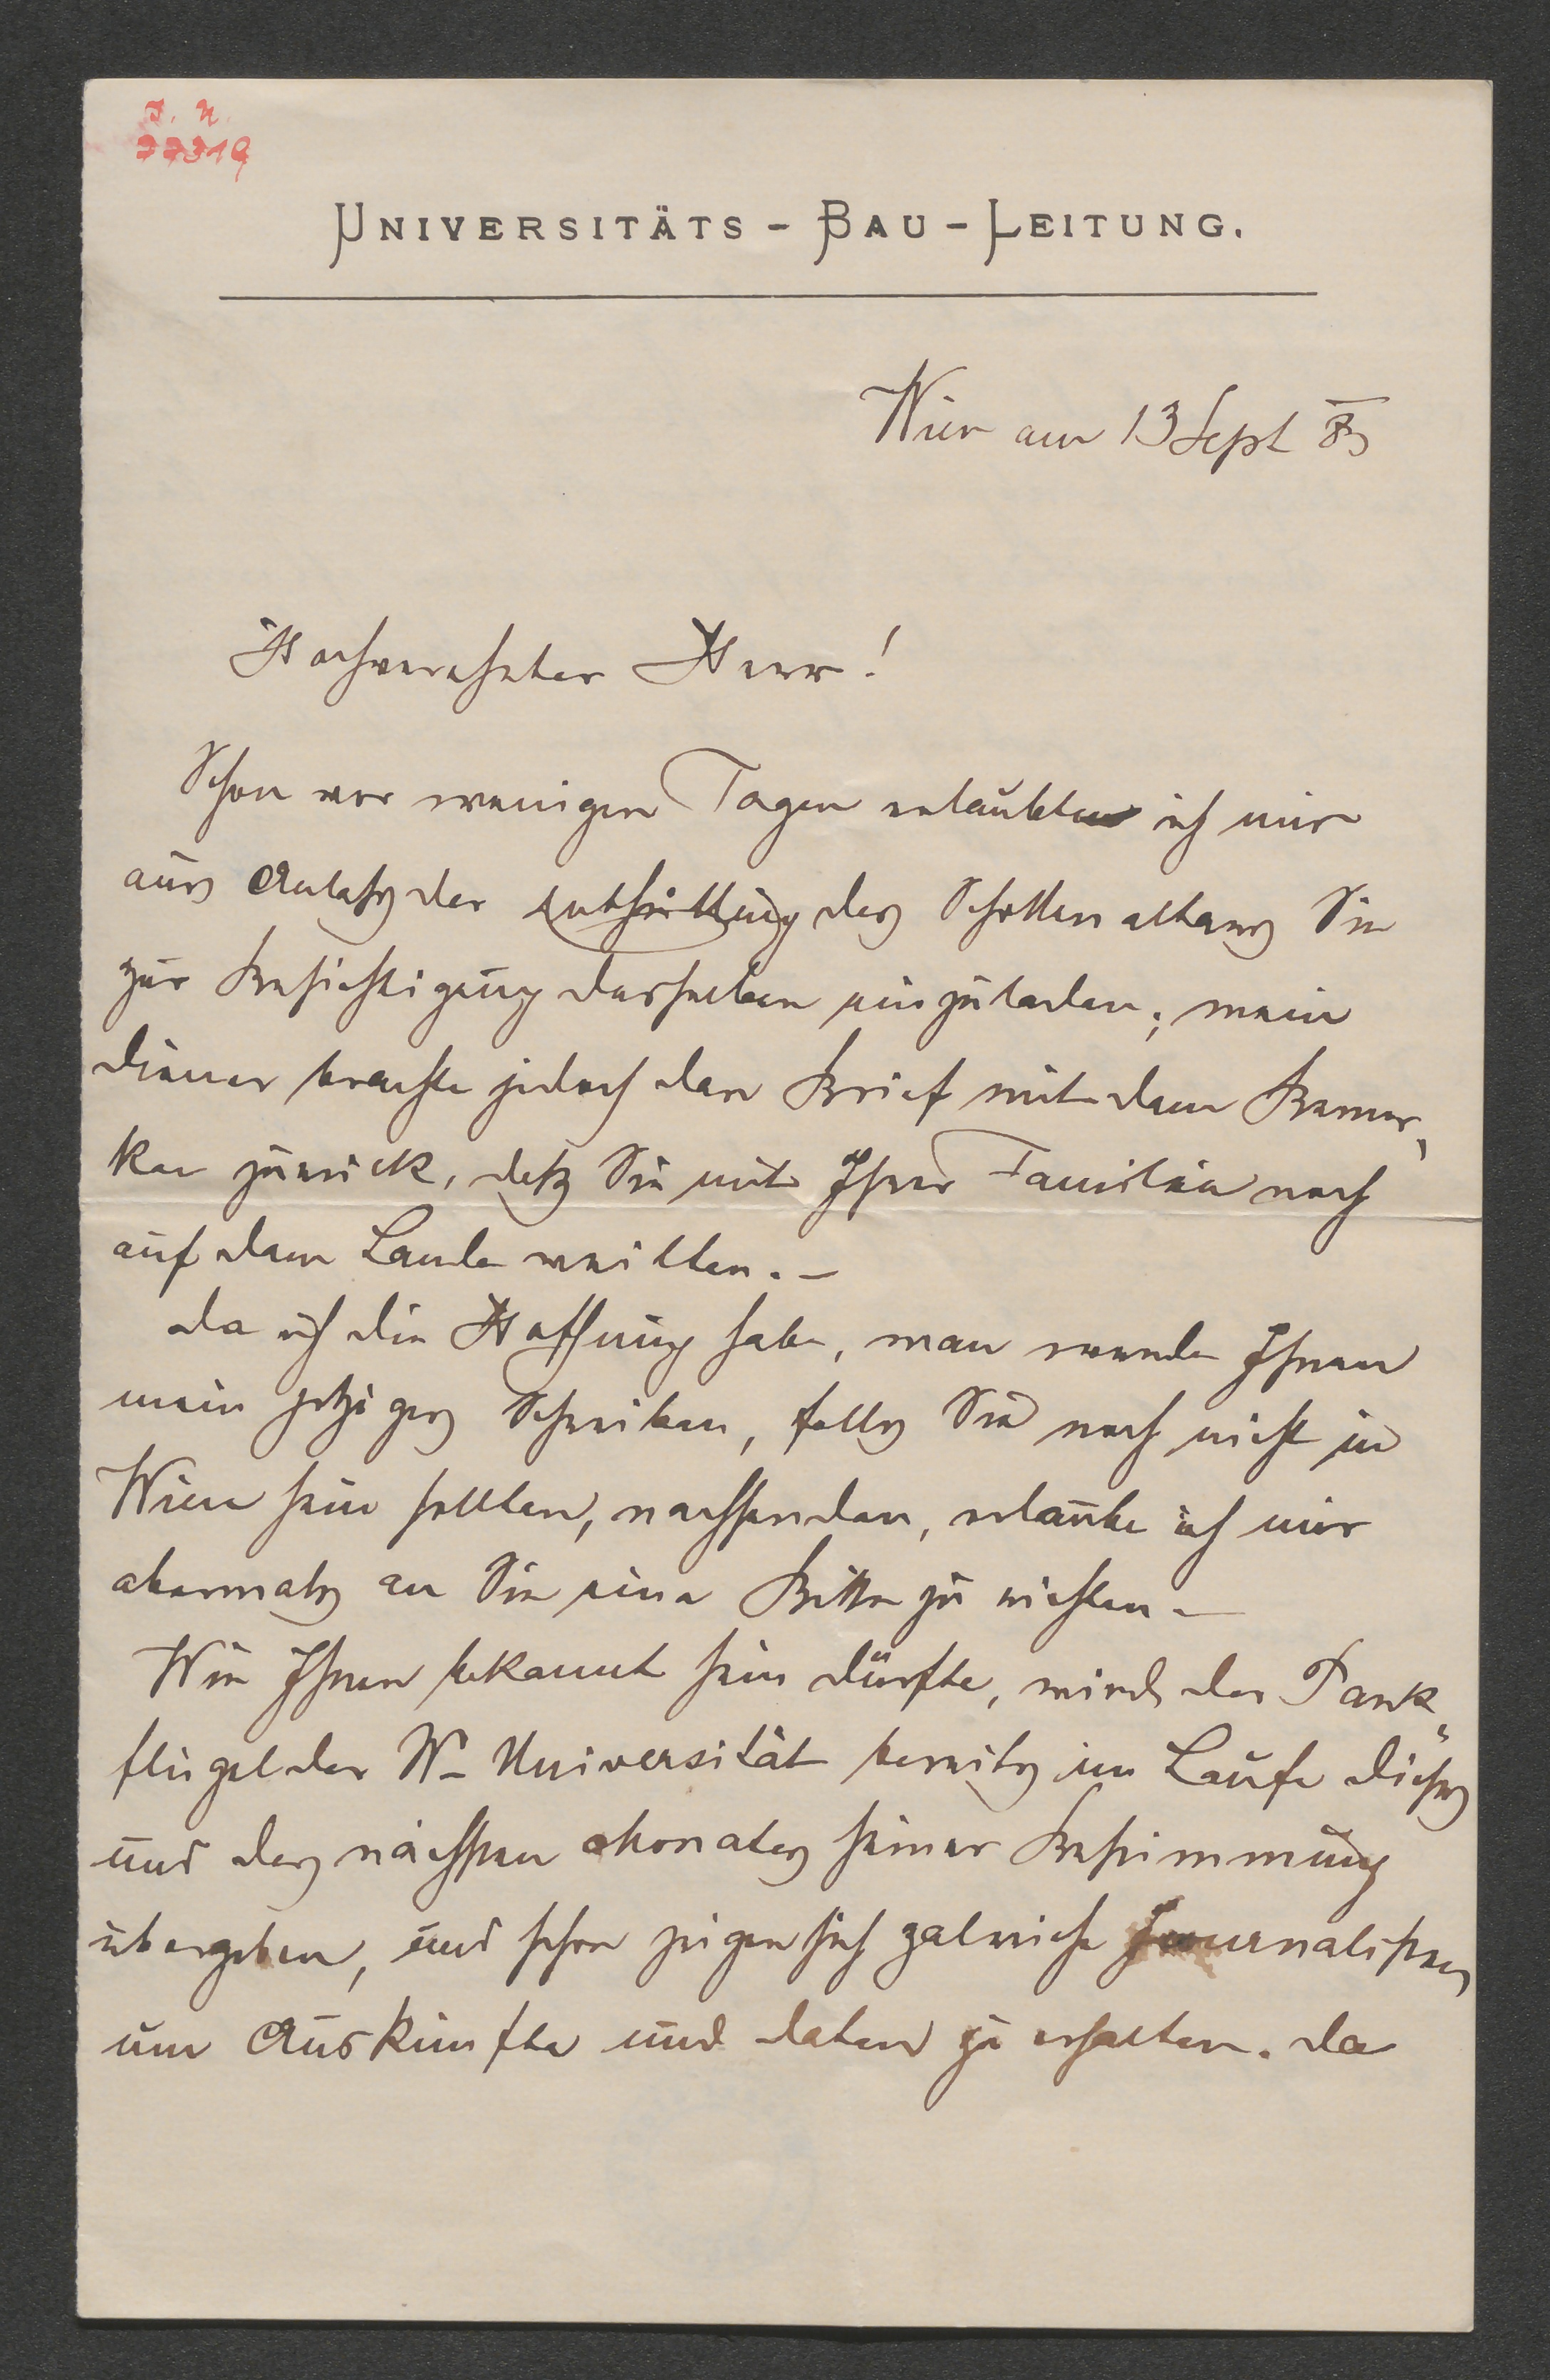 I. N.
77319
UNIVERSITÄTS-BAU-LEITUNG.
Wien am 13 Sept 83
Hochverehrter Herr!
Schon vor wenigen Tagen erlaubte ich mir
aus Anlaß der Enthüllung des Schottenaltars Sie
zur Besichtigung desselben einzuladen; mein
Diener brachte jedoch den Brief mit dem Bemer-
ken zurück, daß Sie mit Ihrer Familie noch
auf dem Lande weilten. –
Da ich die Hoffnung habe, man werde Ihnen
mein jetziges Schreiben, falls Sie noch nicht in
Wien sein sollten, nachsenden, erlaube ich mir
abermals an Sie eine Bitte zu richten –
Wie Ihnen bekannt sein dürfte, wird der Park-
flügel der W- Universität bereits im Laufe dieses
und des nächsten Monates seiner Bestimmung
übergeben, und schon zeigen sich zalreiche Journalisten
um Auskünfte und Daten zu erhalten. Da